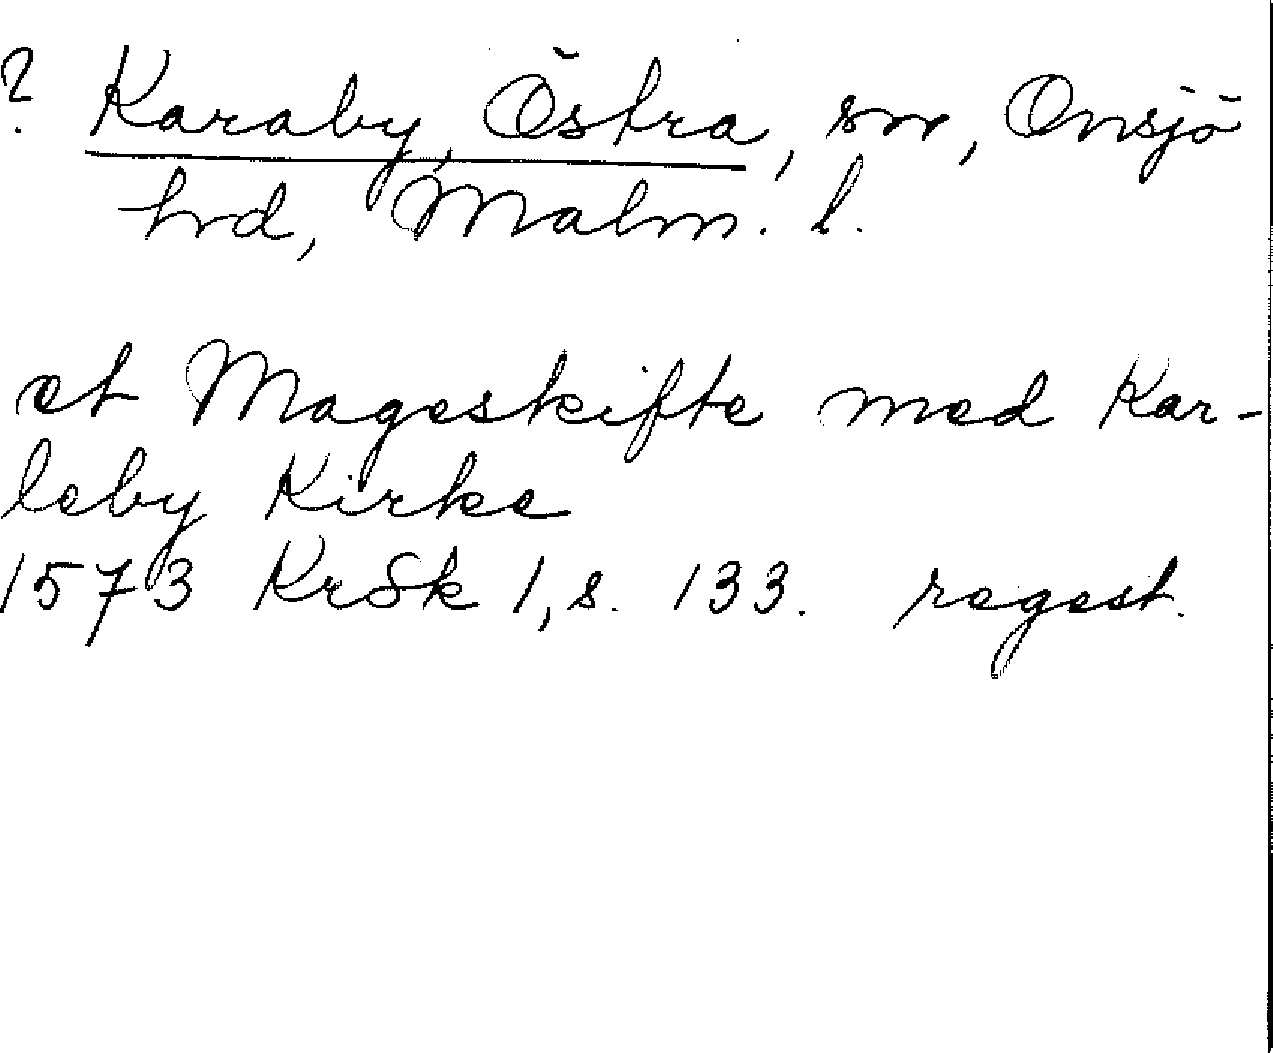 ? Karaby, Östra, sn, Onsjö
hrd, Malm. l.
et Mageskifte med Kar-
leby Kirke
1573 KrSk 1, s. 133. regest.